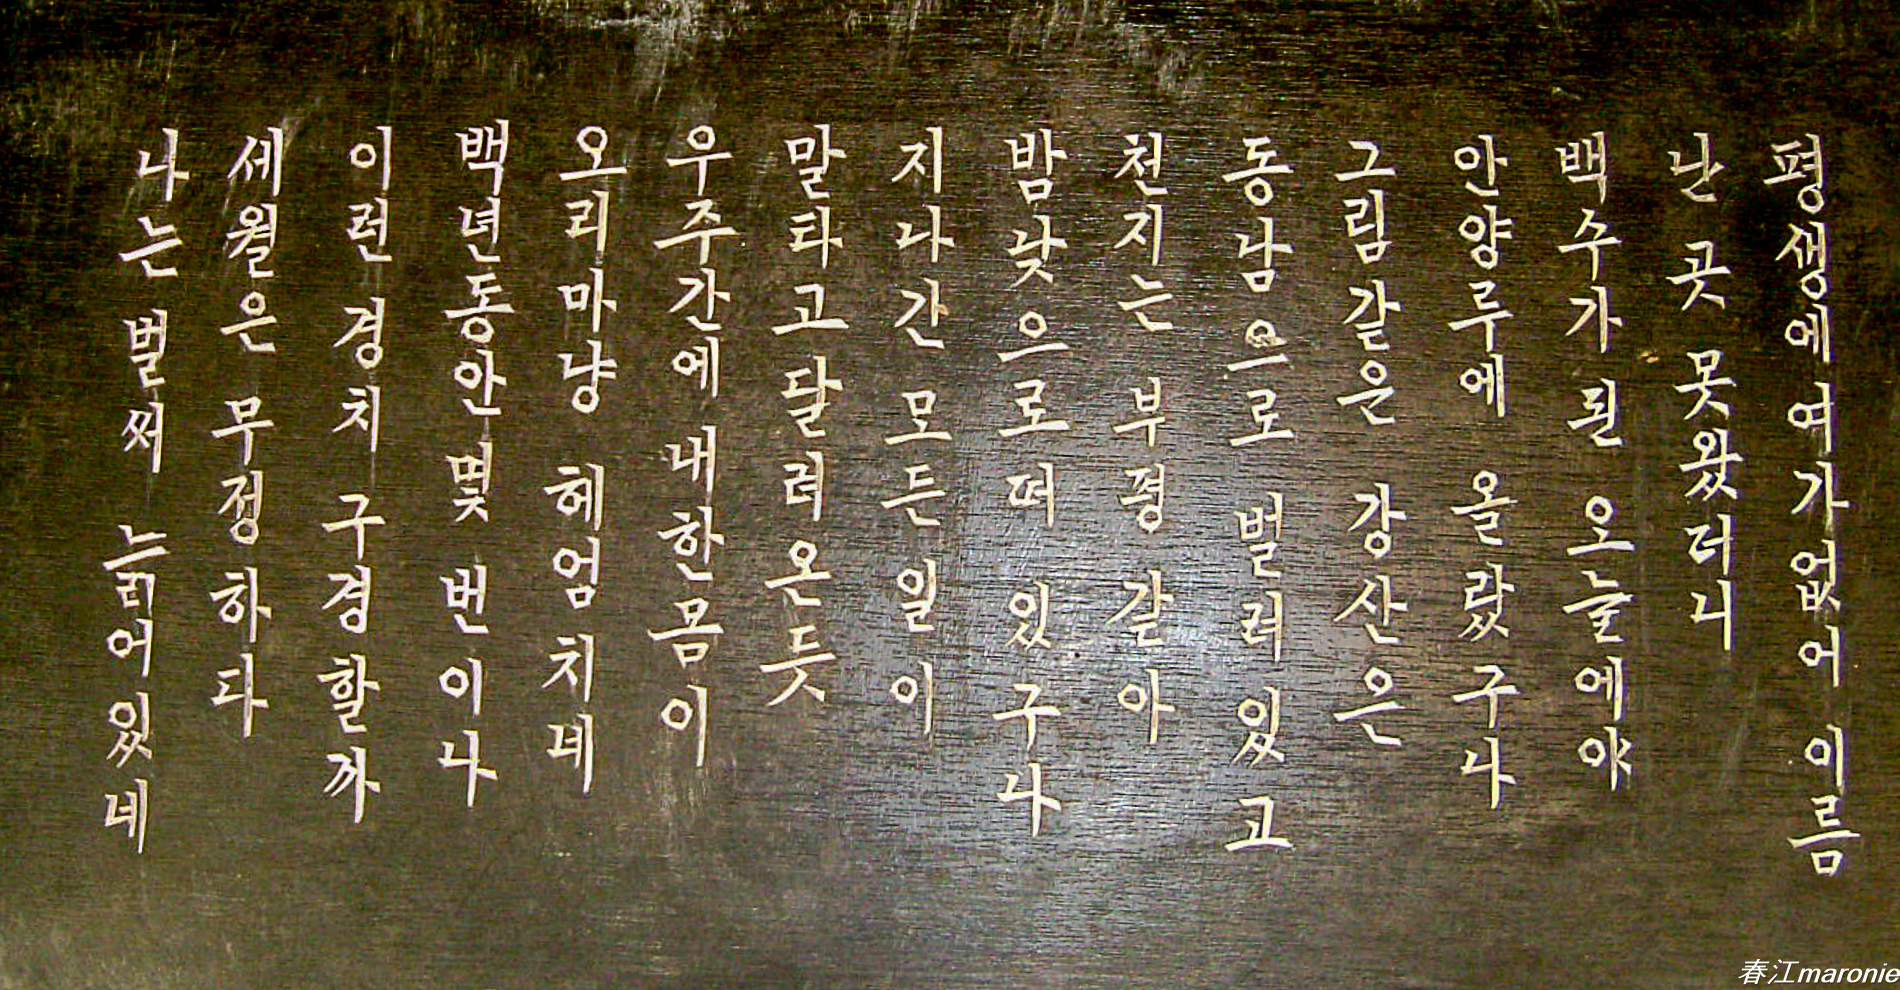 평생에 여가 없어 이름
난 곳 못 왔더니
백수가 된 오늘에야
안양루에 올랐구나
그림 같은 강산은
동남으로 벌려 있고
천지는 부평 같아
밤낮으로 떠 있구나
지나간 모든 일이
말타고 달려온 듯
우주간에 내 한 몸이
오리마냥 헤엄치네
백년동안 몇 번이나
이런 경치 구경할까
세월은 무정하다
나는 벌써 늙어있네
春江maronie